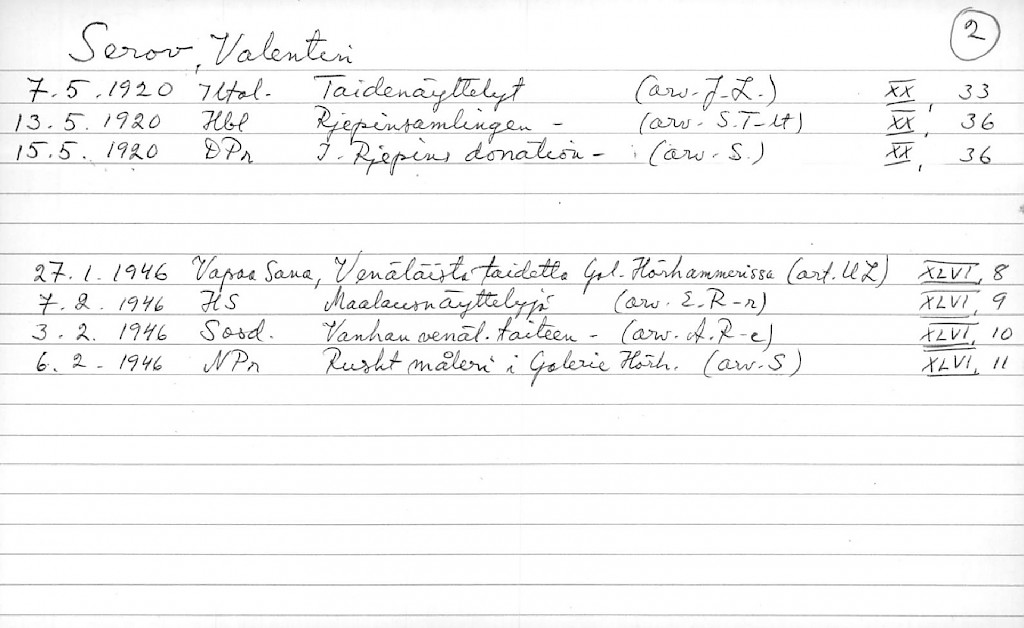 Serov, Valentin 2
7.5.1920 Iltal. Taidenäyttelyt (arv. J-L.) XX, 33
13.5.1920 Hbl Rjepinsamlingen - (arv. S.T-llt) XX, 36
15.5.1920 DPr I. Rjepins donation - (arv. S.) XX, 36
27.1.1946 Vapaa Sana, Venäläistä taidetta Gal. Hörhammerissa (art. U L) XLVI, 8
7.2.1946 HS Maalausnäyttelyjä (arv. E.R-r) XLVI, 9
3.2.1946 Sosd. Vanhan venäl. taiteen - (arv. A.R-e) XLVI, 10
6.2-1946 NPr Ryskt måleri i Galerie Hörh. (arv. S) XLVI, 11